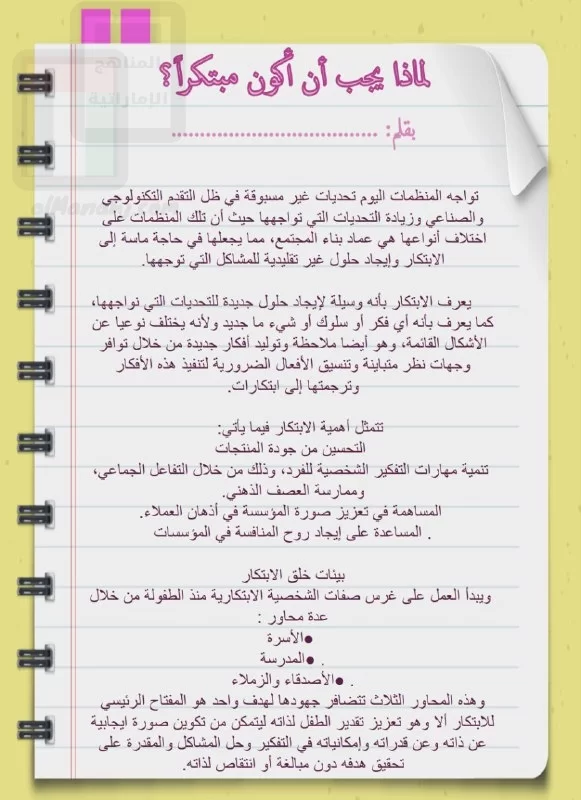 المناهج
الإماراتية
لماذا يجب أن أكون مبتكراً؟
بقلم: ......................................
تواجه المنظمات اليوم تحديات غير مسبوقة في ظل التقدم التكنولوجي
والصناعي وزيادة التحديات التي تواجهها حيث أن تلك المنظمات على
اختلاف أنواعها هي عماد بناء المجتمع، مما يجعلها في حاجة ماسة إلى
الابتكار وإيجاد حلول غير تقليدية للمشاكل التي توجهها.
يعرف الابتكار بأنه وسيلة لإيجاد حلول جديدة للتحديات التي نواجهها،
كما يعرف بأنه أي فكر أو سلوك أو شيء ما جديد ولأنه يختلف نوعيا عن
الأشكال القائمة، وهو أيضا ملاحظة وتوليد أفكار جديدة من خلال توافر
وجهات نظر متباينة وتنسيق الأفعال الضرورية لتنفيذ هذه الأفكار
وترجمتها إلى ابتكارات.
تتمثل أهمية الابتكار فيما يأتي:
التحسين من جودة المنتجات
تنمية مهارات التفكير الشخصية للفرد، وذلك من خلال التفاعل الجماعي،
وممارسة العصف الذهني.
المساهمة في تعزيز صورة المؤسسة في أذهان العملاء.
. المساعدة على إيجاد روح المنافسة في المؤسسات
بيئات خلق الابتكار
ويبدأ العمل على غرس صفات الشخصية الابتكارية منذ الطفولة من خلال
عدة محاور :
●الأسرة
. ●المدرسة
. ●الأصدقاء والزملاء
وهذه المحاور الثلاث تتضافر جهودها لهدف واحد هو المفتاح الرئيسي
للابتكار ألا وهو تعزيز تقدير الطفل لذاته ليتمكن من تكوين صورة ايجابية
عن ذاته وعن قدراته وإمكانياته في التفكير وحل المشاكل والمقدرة على
تحقيق هدفه دون مبالغة أو انتقاص لذاته.